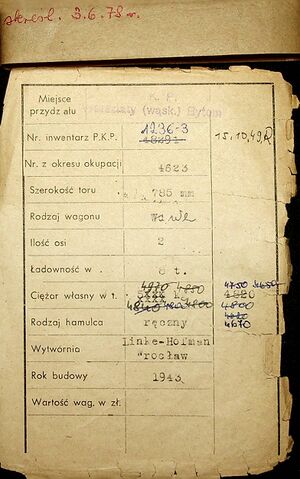 skreśl. 3.6.78 r.
Miejsce przydziału K. P. Warsztaty (wąsk.) Bytom
Nr. inwentarz P.K.P. 1236-3 15.10.49
Nr. z okresu okupacji 4623
Szerokość toru 785 mm
Rodzaj wagonu
Ilość osi 2
Ładowność w . 8 t.
4970 4850 4750 4650
Ciężar własny w t. 4620
4800 4800
Rodzaj hamulca ręczny 4670
Wytwórnia Linke-Hofman Wrocław
Rok budowy 1943
Wartość wag. w zł.